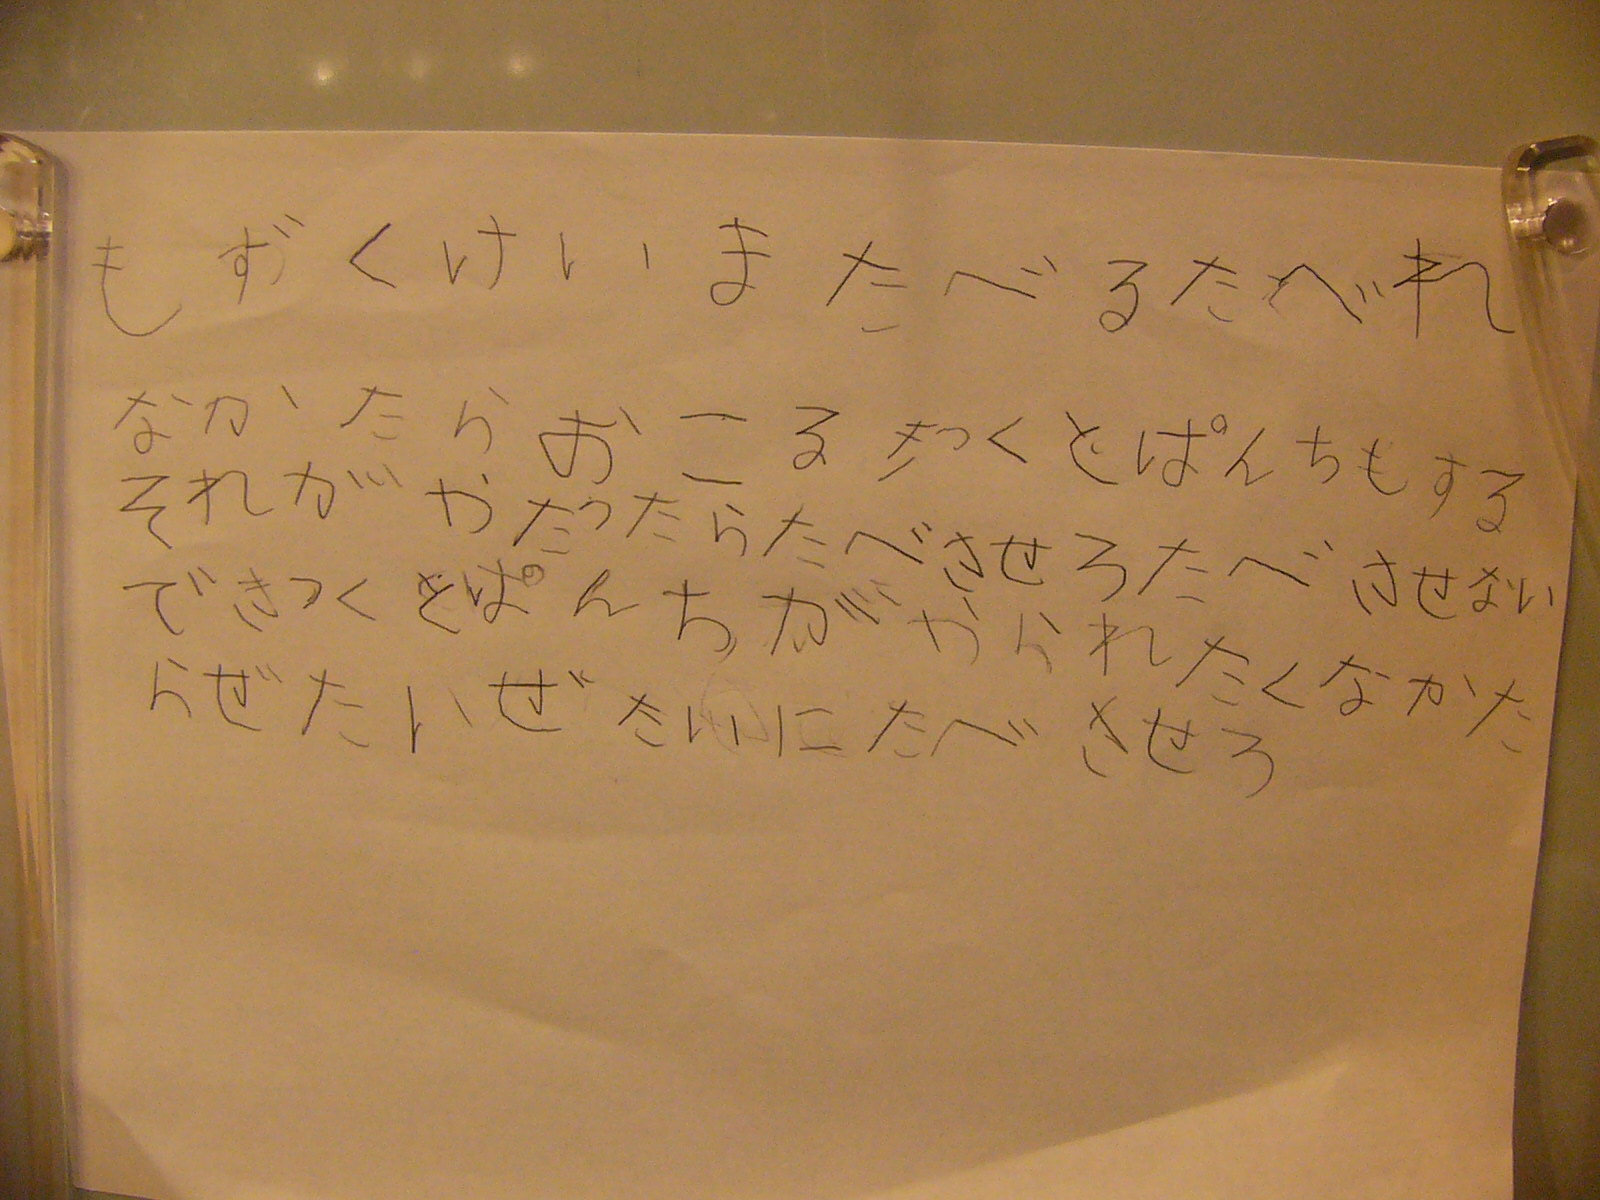 もずくけいまたべるたべれ
なかたらおこるきつくとぱんちもする
それがやだったらたべさせろたべさせない
できつくとぱんちがやられたくなかた
らぜたいぜたいにたべさせろ